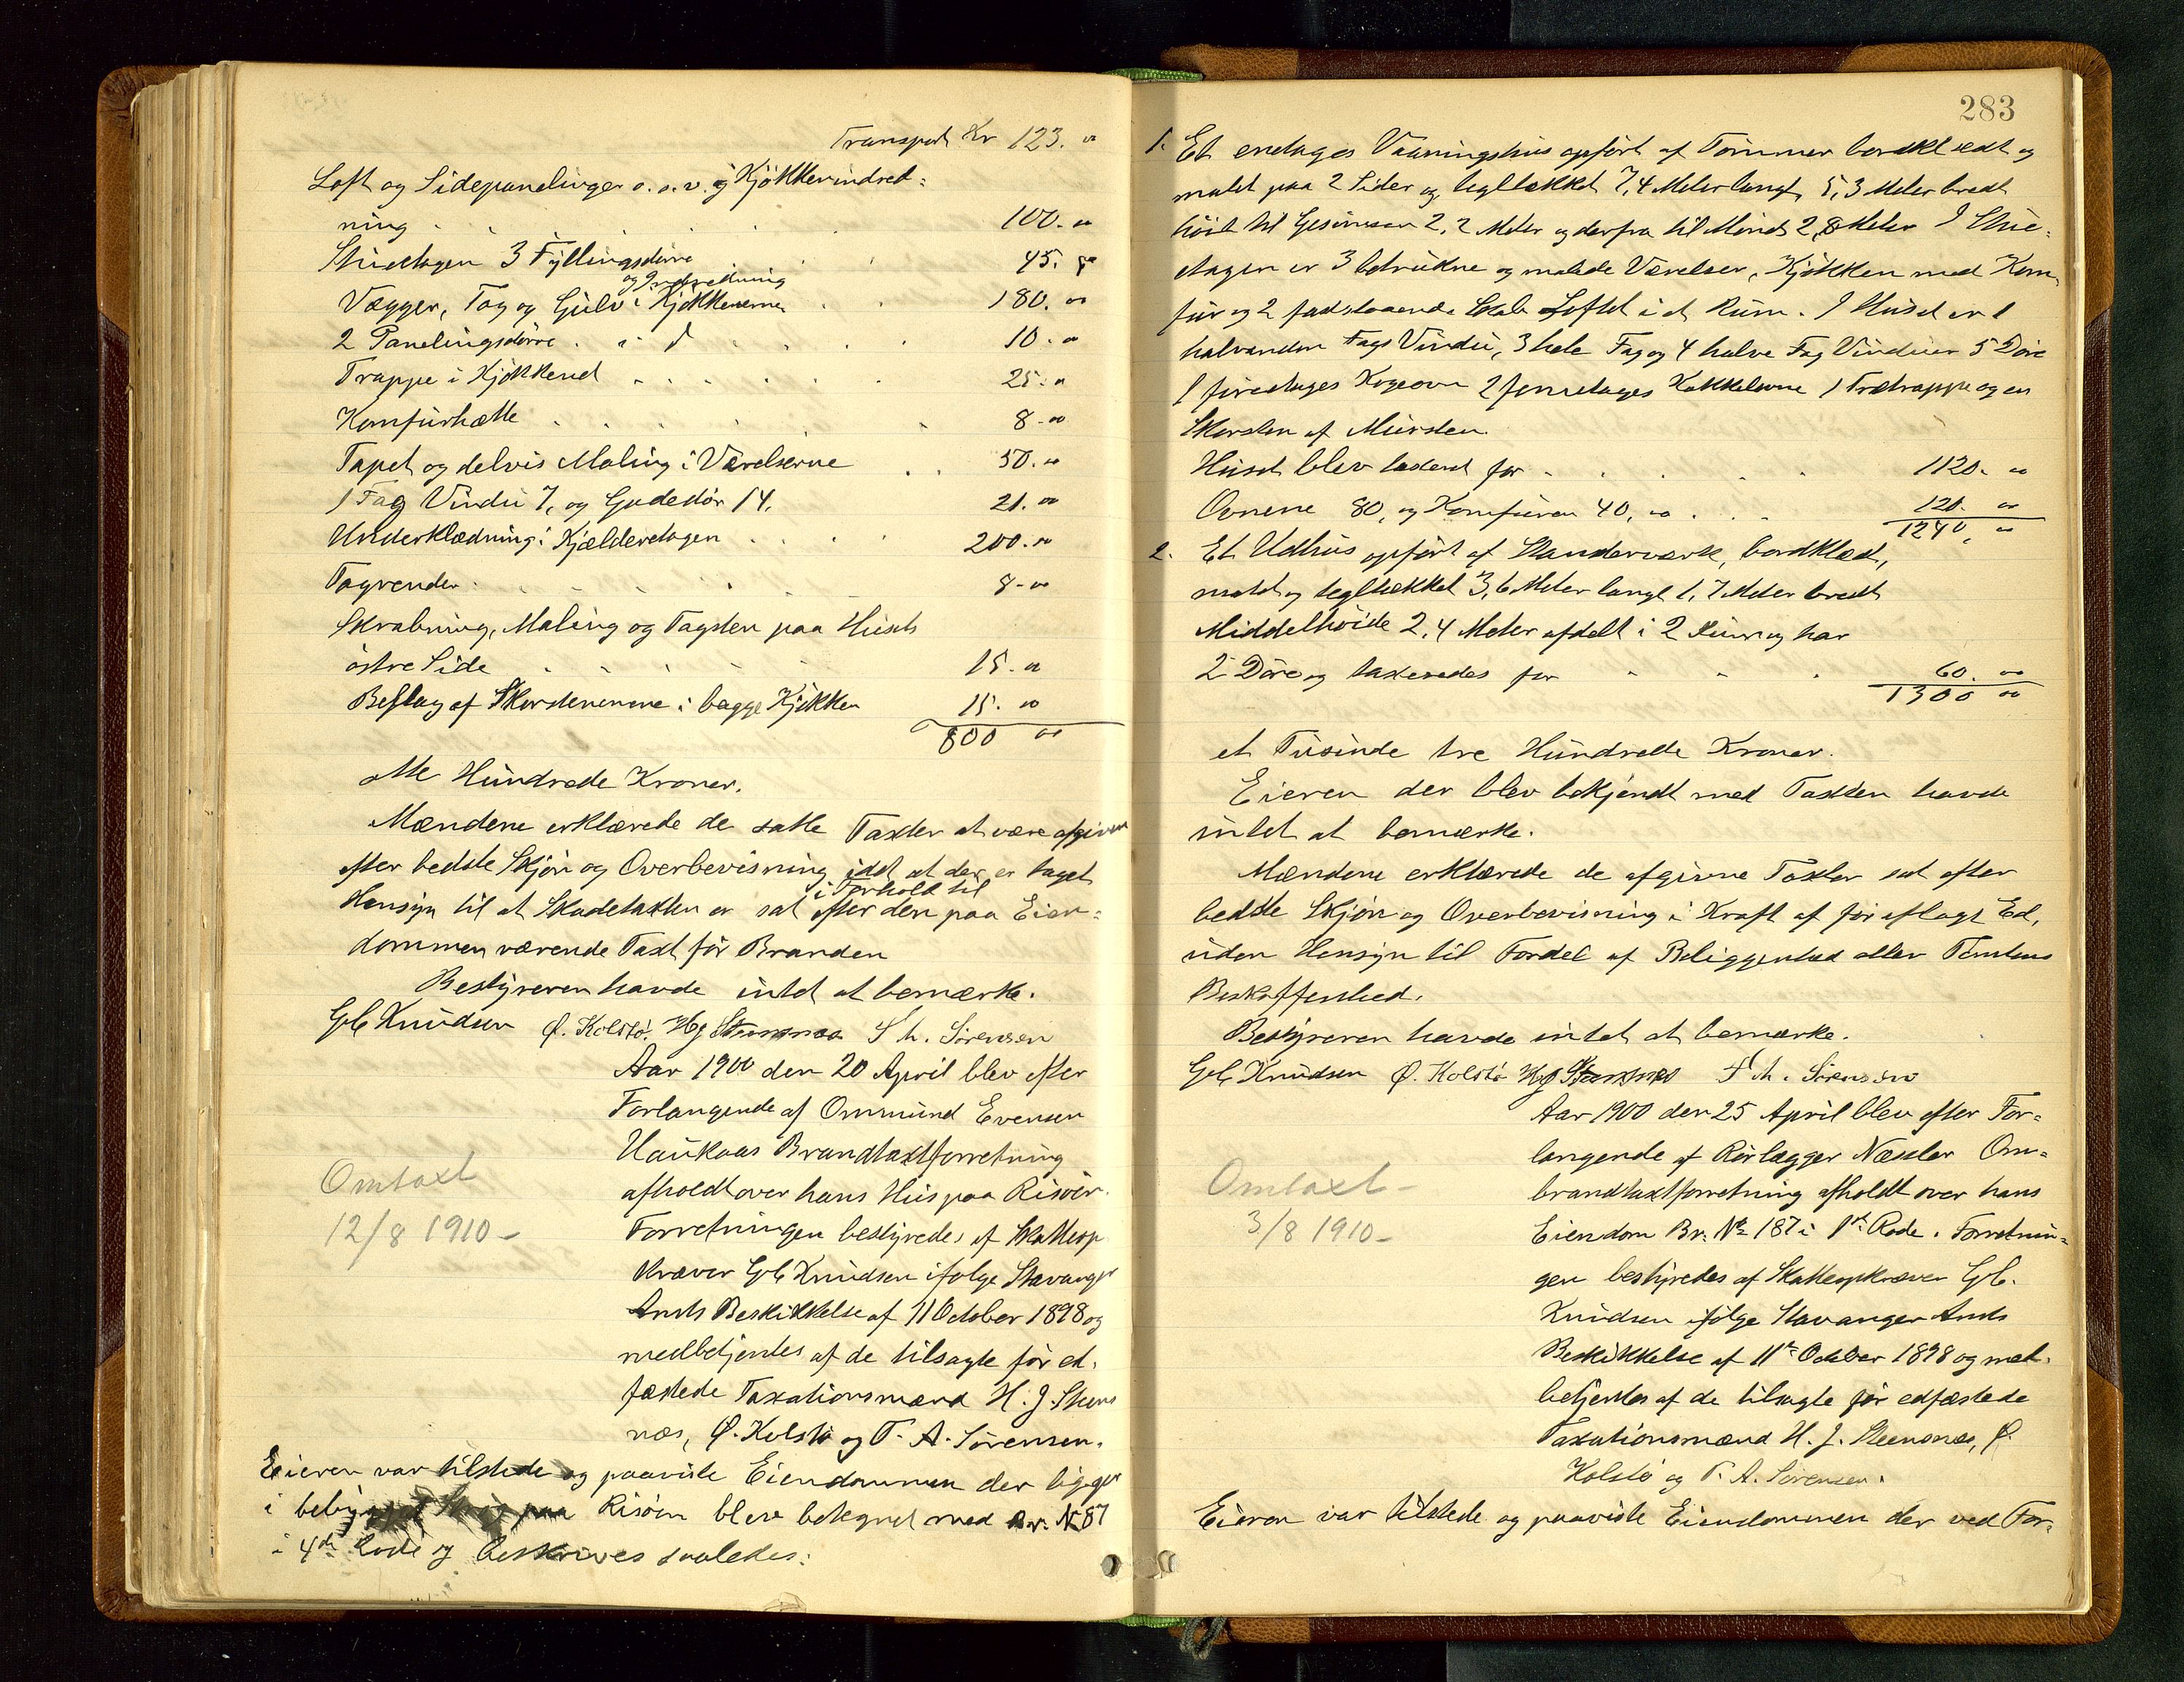 Transport Kr 123. 00
Loft og Sidepanelinger o. s. v. i Kjökkenindret=
ning 100. 00
Stueetagen 3 Fyllingsdörre 45. 00
og Indredning
Vægger, Tag og Gulv i Kjökkenerne 180. 00
2 Panelingsdörre 10. 00
Trappe i Kjökkenet 25. 00
Komfurhætte 8. 00
Tapet og delvis Maling i Værelserne 50. 00
1 Fag Vindu 7, og Gadedör 14. 21. 00
Underklædning i Kjælderetagen 200. 00
Tagrender 8. 00
Skrabning, Maling og Tagsten paa Husets
östre Side 15. 00
Beslag af Skorstenene i begge Kjökken 15. 00
800 00
otte Hundrede Kroner.
Mændene erklærede de satte Taxter at være afgivne
efter bedste Skjön og Overbevisning idet at der er taget
i Forhold til
Hensyn til at Skadetaxten er sat efter den paa Eien=
dommen værende Taxt för Branden
Bestyreren havde intet at bemærke.
Gb Knudsen Ø. Kolstö. H J Steensnæs T A. Sörensen
Aar 1900 den 20 April blev efter
Forlangende af Ommund Evensen
Haukaas Brandtaxtforretning
afholdt over hans Hus paa Risöen.
Omtaxt
12/8 1910 -
Forretningen bestyredes af Skatteop
kræver Gb Knudsen ifölge Stavanger
Amts Beskikkelse af 11 October 1898 og
medbetjentes af de tilsagte för ed=
fæstede Taxationsmænd H. J. Steens
næs, Ø. Kolstö og T. A. Sörensen.
Eieren var tilstede og paaviste Eiendommen der ligger
i paa Risöen blev betegnet med Br. No 87
i 4de Rode og beskrives saaledes:
283
1. Et enetages Vaaningshus opfört af Tömmer bordklædt og
malet paa 2 Sider og tegltækket 7,4 Meter langt, 5,3 Meter bredt
höit til Gesimsen 2,2 Meter og derfra til Mönet 2,8 Meter I Stue=
etagen er 3 betrukne og malede Værelser, Kjökken med Kom=
fur og 2 fastslaaende Skab Loftet i et Rum. I Huset er 1
halvanden Fags Vindu, 3 hele Fag og 4 halve Fag Vinduer 5 Döre
1 fireetages Kogeovn 2 femetages Kakkelovne 1 Trætrappe og en
Skorsten af Mursten.
Huset blev taxeret for 1120. 00
Ovnene 80, og Komfuren 40, 00 120. 00
1240, 00
2. Et Udhus opfört af Standerværk, bordklæd,
malt og tegltækket 3,6 Meter langt 1,7 Meter bredt
Middelhöide 2,4 Meter afdelt i 2 Rum og har
2 Döre og taxeredes for 60. 00
1300 00
et Tusinde tre Hundrede Kroner.
Eieren der blev bekjendt med Taxten havde
intet at bemærke.
Mændene erklærede de afgivne Taxter sat efter
bedste Skjön og Overbevisning i Kraft af för aflagt Ed,
uden Hensyn til Fordel af Beliggenhed eller Tomtens
Beskaffenhed.
Bestyreren havde intet at bemærke.
Gb Knudsen Ø. Kolstö H J Steensnæs T A. Sörensen
Aar 1900 den 25 April blev efter For=
langende af Rörlægger Næsler Om=
brandtaxtforretning afholdt over hans
Omtaxt -
3/8 1910 -
Eiendom Br. No 187 i 1ste Rode. Forretnin=
gen bestyredes af Skatteopkræver Gb.
Knudsen ifölge Stavanger Amts
Beskikkelse af 11te October 1898 og med=
betjentes af de tilsagte för edfæstede
Taxationsmænd H. J. Steensnæs, Ø.
Kolstö og T. A. Sörensen.
Eieren var tilstede og paaviste Eiendommen der ved For=